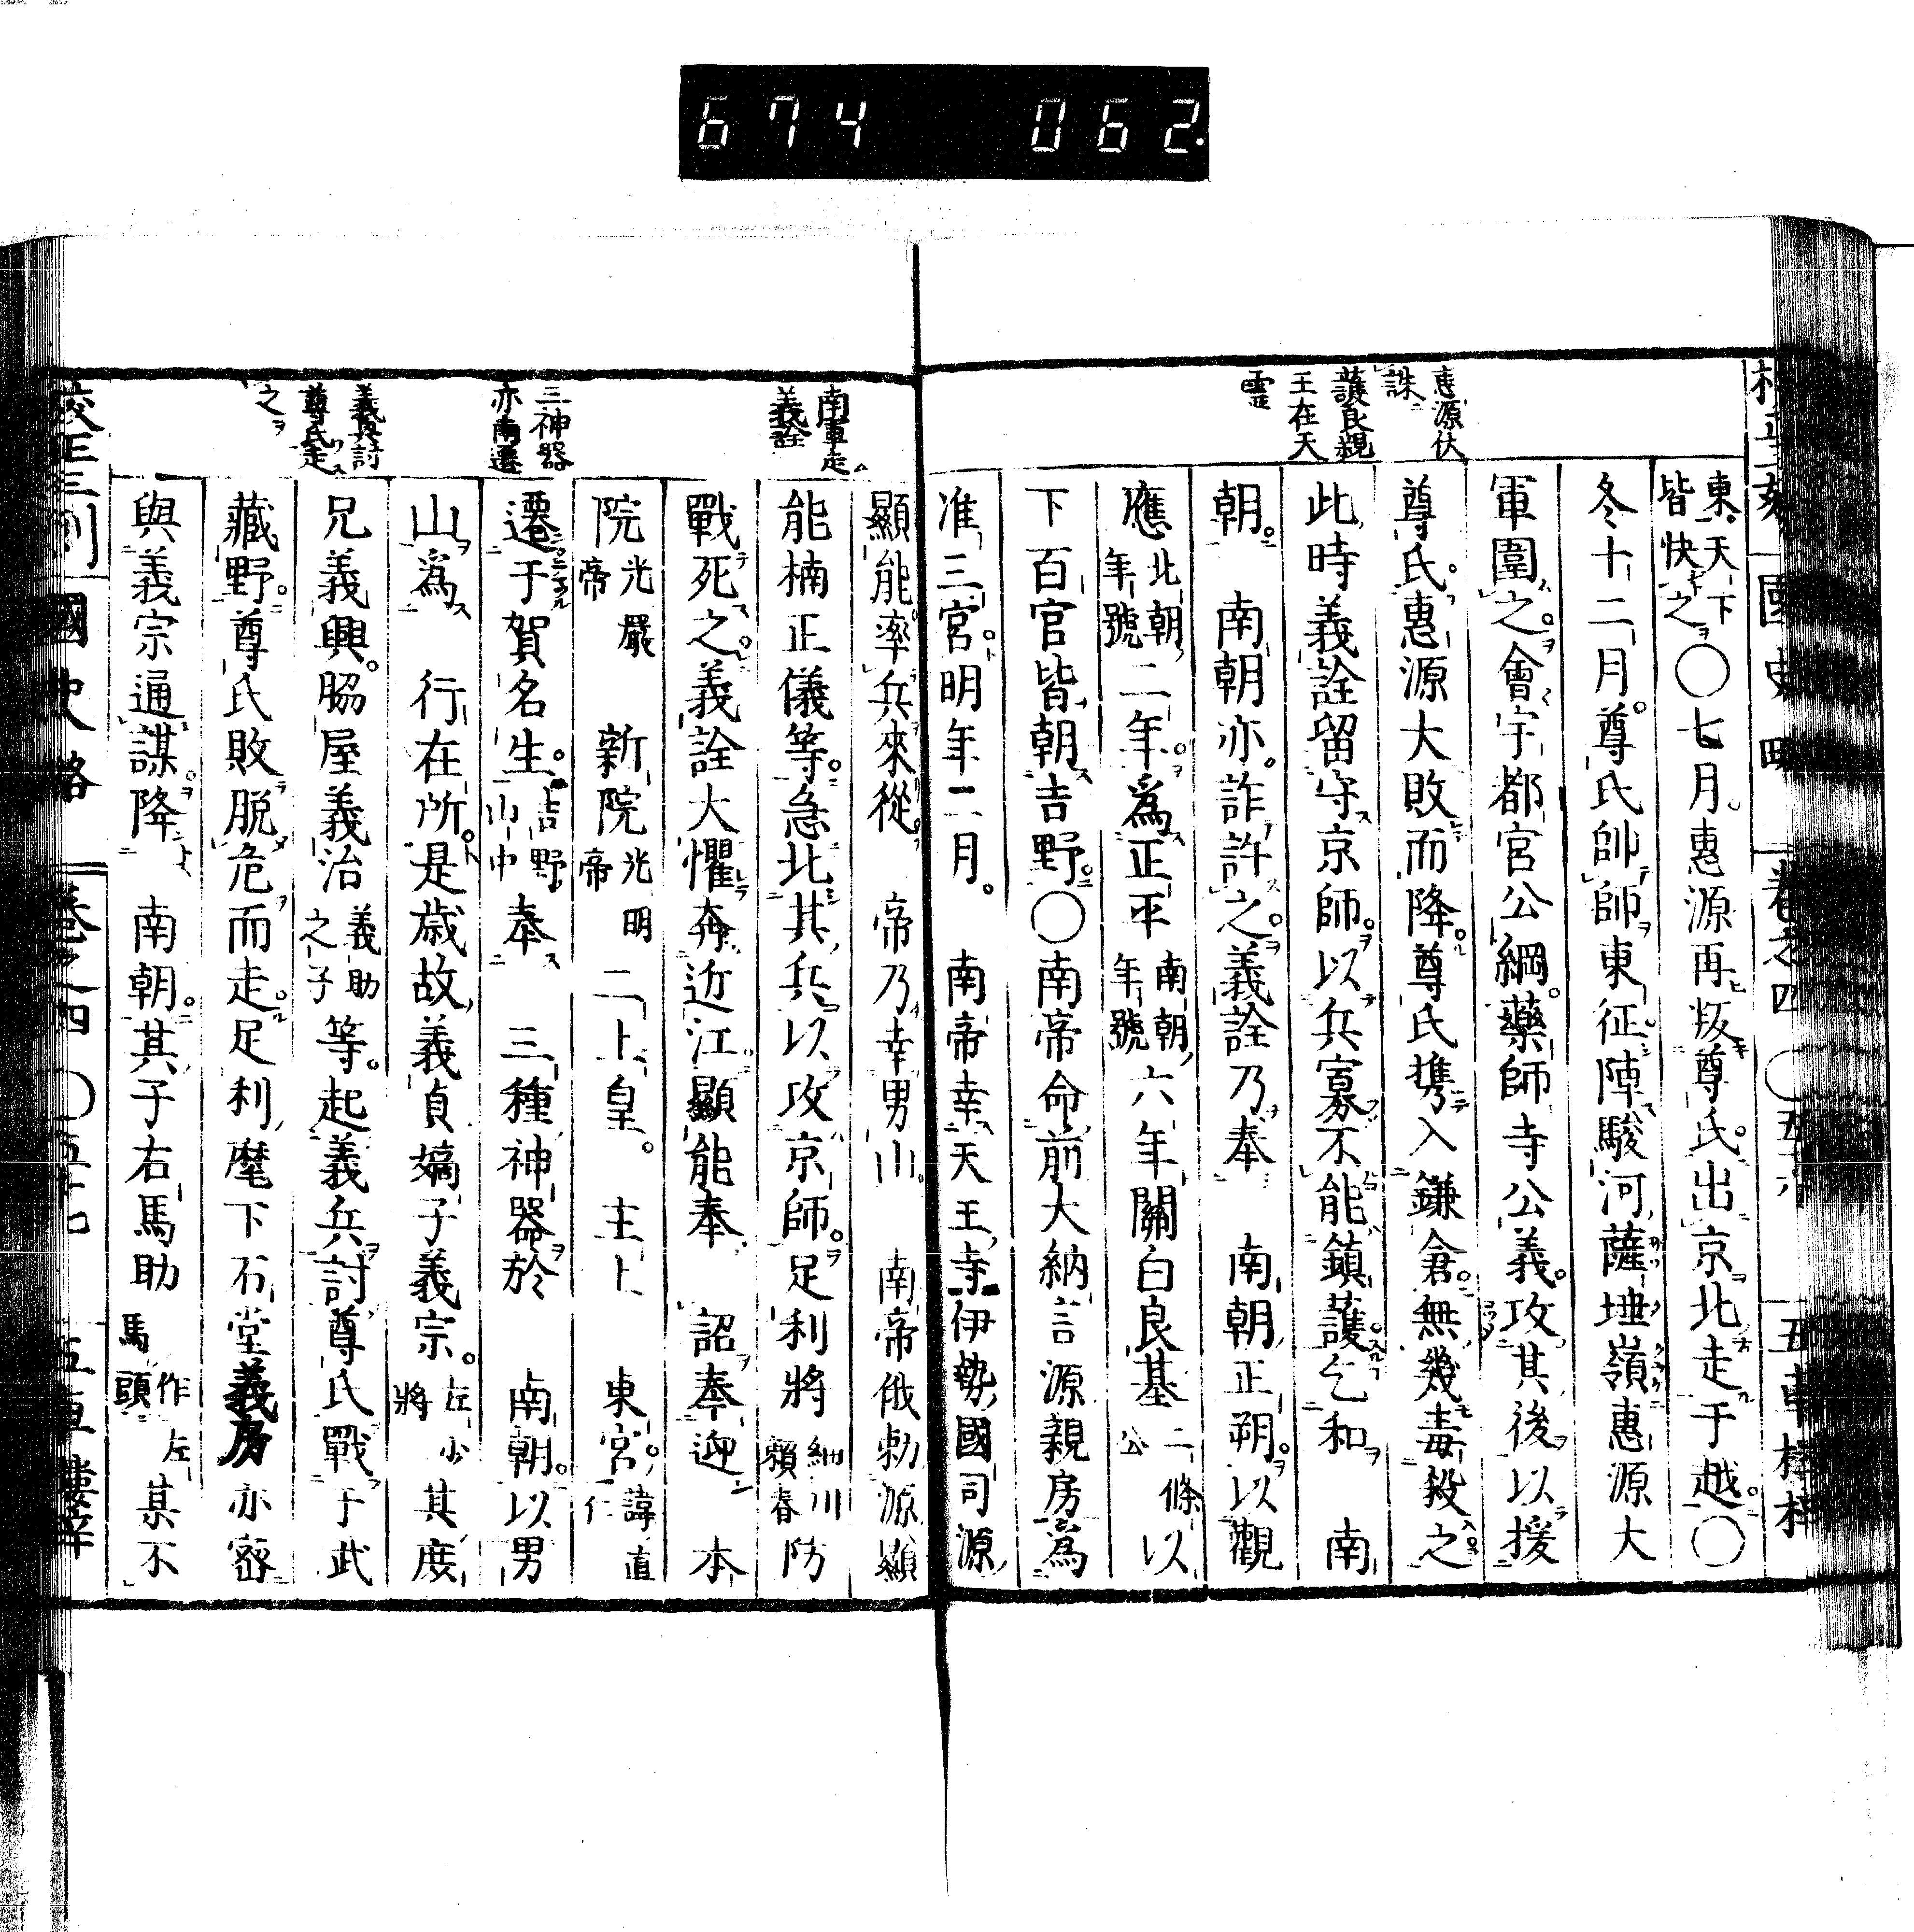 674 062.
校正三刻 國史略 卷之四 〇五十六 五車樓梓
惠源伏
誅
護良親
王在天
靈
東天下
皆快之〇七月惠源再叛尊氏出京北走于越〇
冬十二月尊氏帥師東征陣駿河薩埵嶺惠源大
軍圍之會宇都宮公綱藥師寺公義攻其後以援
尊氏惠源大敗而降尊氏携入鎌倉無幾毒殺之
此時義詮留守京師以兵寡不能鎮護乞和 南
朝 南朝亦詐許之義詮乃奉 南朝正朔以觀
應北朝年號二年爲正平南朝年號六年關白良基二條公以
下百官皆朝吉野〇南帝命前大納言源親房爲
准三宮明年二月 南帝幸天王寺伊勢國司源
南軍走
義詮
三神器
亦南遷
義興討
尊氏走
之
顯能率兵來從 帝乃幸男山 南帝俄勅源顯
能楠正儀等急北其兵以攻京師足利將細川賴春防
戰死之義詮大懼奔近江顯能奉 詔奉迎 本
院光嚴帝 新院光明帝 二上皇 主上 東宮諱直仁
遷于賀名生吉野山中奉 三種神器於 南朝以男
山爲 行在所是歲故義貞嫡子義宗左少將其庶
兄義興脇屋義治義助之子等起義兵討尊氏戰于武
藏野尊氏敗脱危而走足利麾下石堂義房亦密
與義宗通謀降 南朝其子右馬助作左馬頭某不
校正三刻 國史略 卷之四 〇五十七 五車樓梓